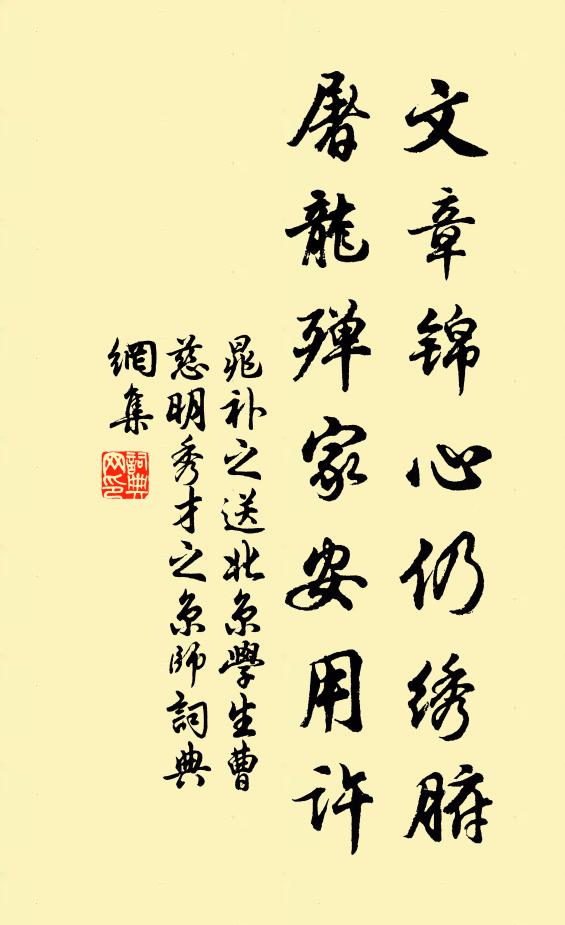 文章锦心仍绣腑
屠龍殚家安用许
晁补之送北京學生曹
慈明秀才之京師詞典
網集
詞典
网印